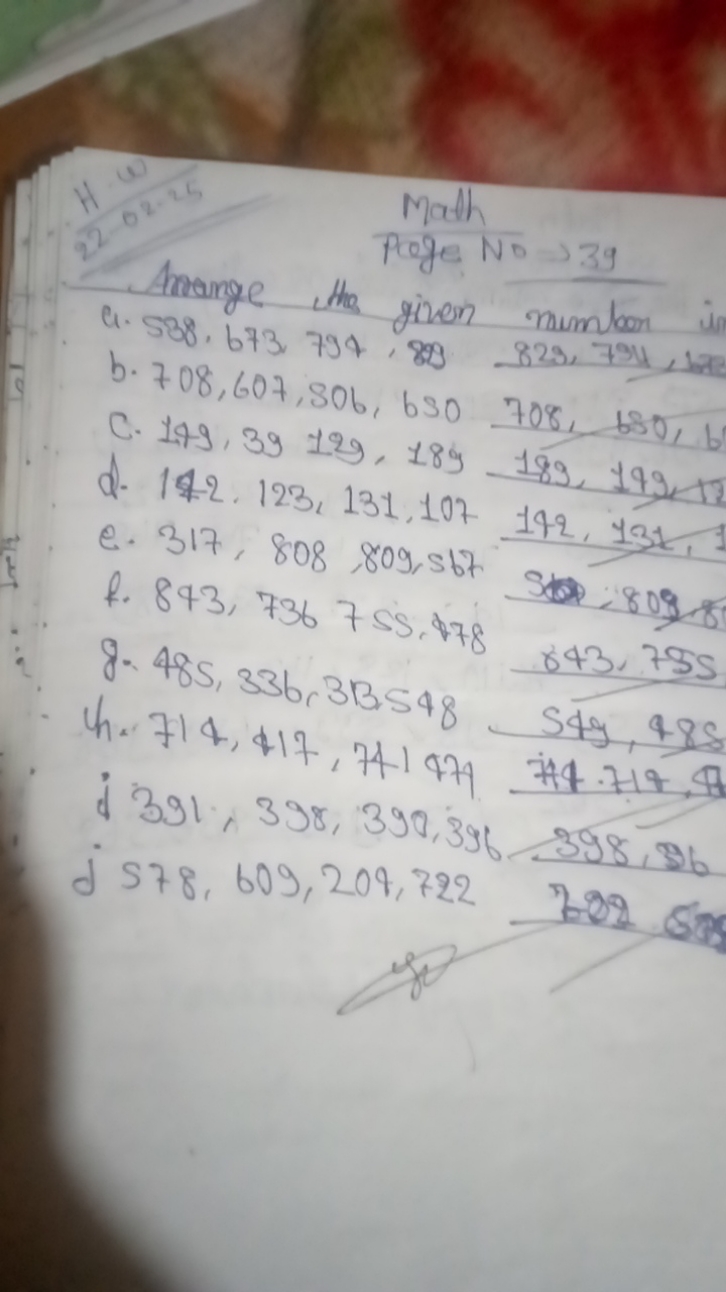 H.W
22-02-25
Math
Page No → 39
Arrange the given number in
a. 538, 673, 794, 829, 794,
b. 708, 607, 506, 650 708, 650, 6
c. 149, 39 129, 189 189, 149, 12
d. 142, 123, 131, 107 142, 131, 1
e. 317, 808, 809, 567 809
f. 843, 736 755, 478 843, 755
g. 485, 336, 313 548 549, 485
h. 714, 417, 741 471 714
i 391, 398, 390, 396 398, 396
j 578, 609, 204, 722